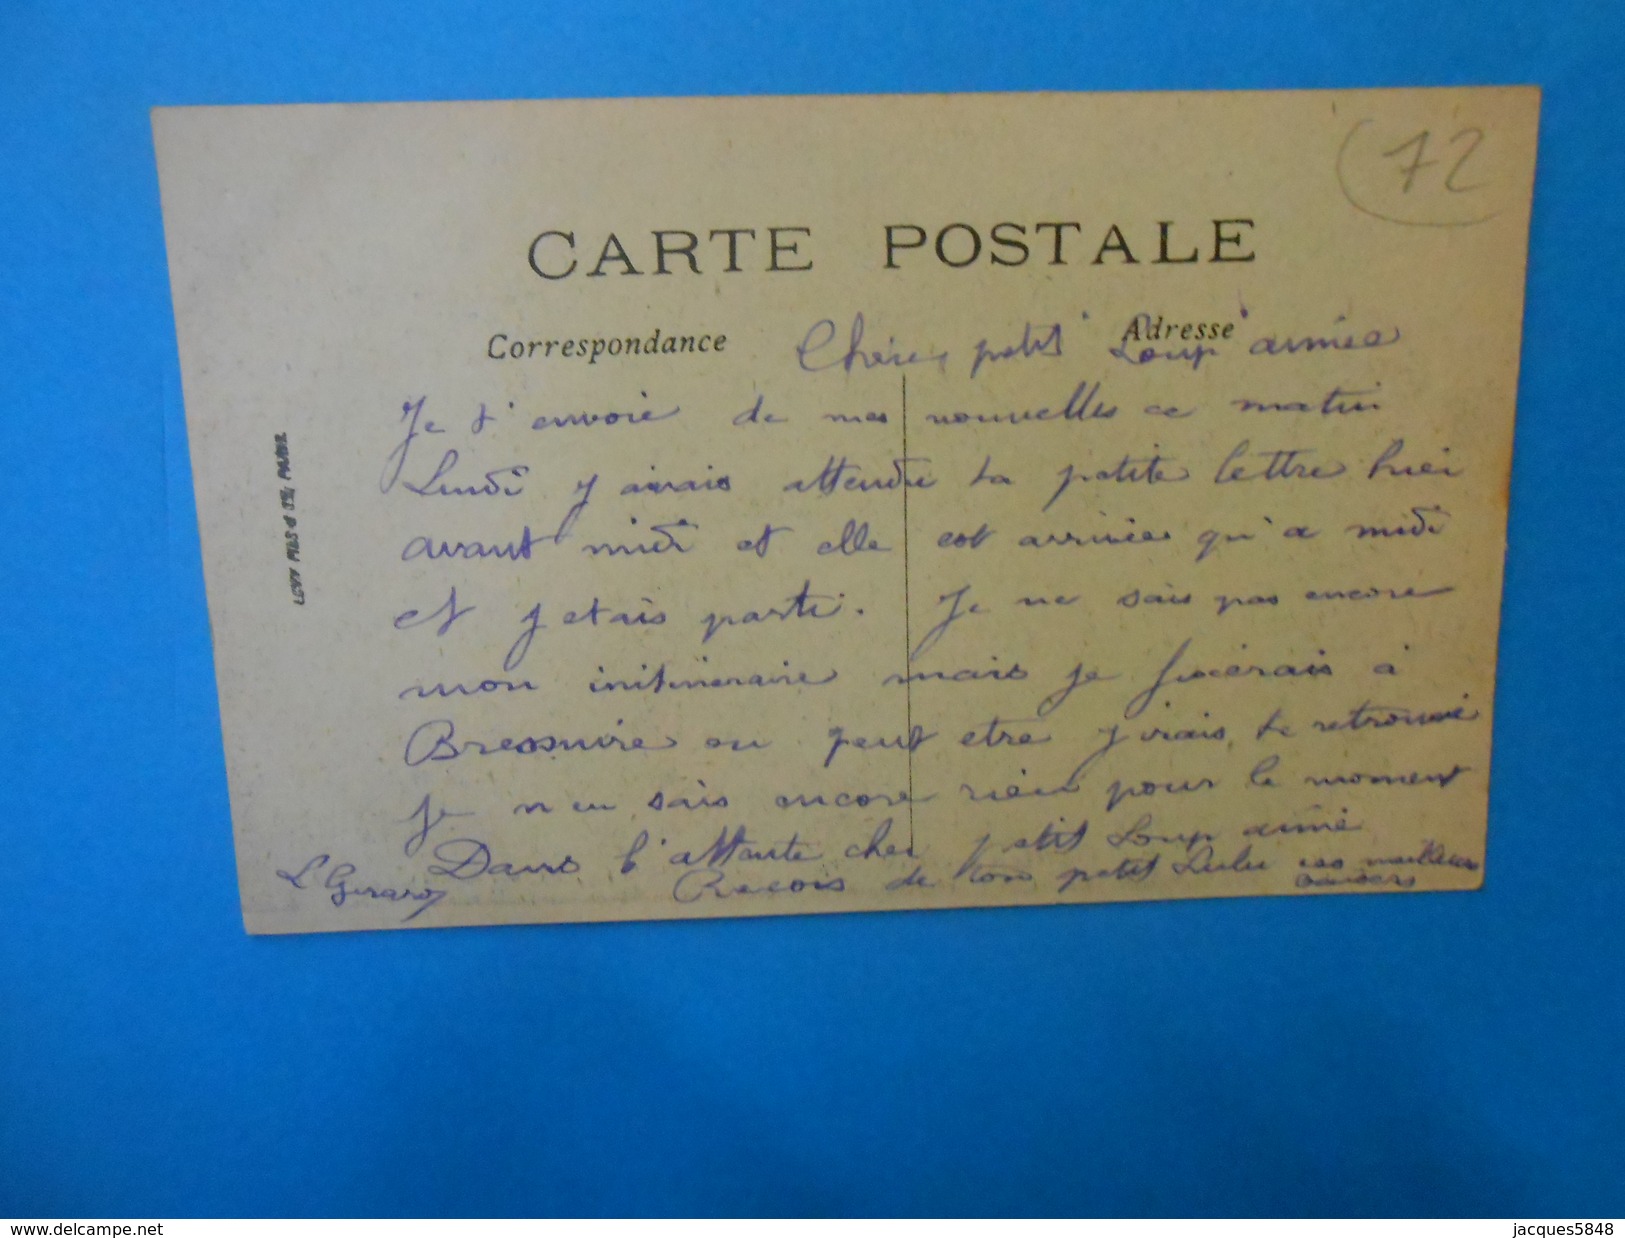 72
CARTE POSTALE
Correspondance
Adresse
LEVY FILS & Cie, PARIS
Chère petit Loup aimée
Je t'envoie de mes nouvelles ce matin
Lundi j avais attendu ta petite lettre hier
avant midi et elle est arrivée qu'a midi
et j etais parti. Je ne sais pas encore
mon initineraire mais je à
Bressuire ou peut etre j irais te retrouvé
je n en sais encore rien pour le moment
Dans l'attente cher petit Loup aimé
Recois de ton petit Lulu ses meilleurs
baisers
L Girard
www.delcampe.net
jacques5848